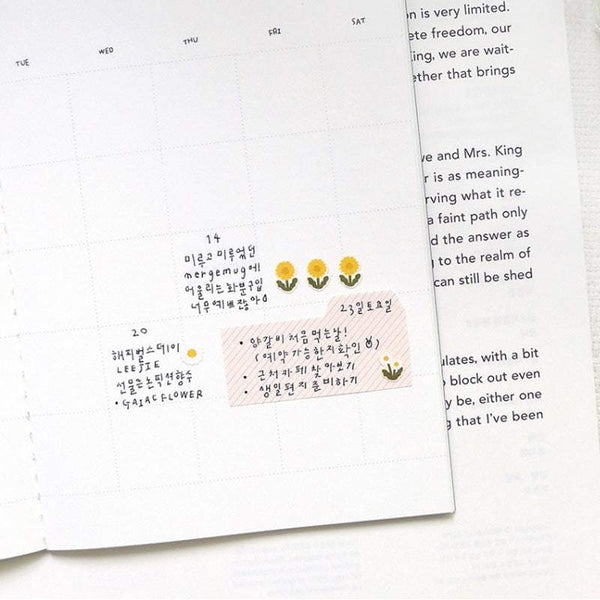 TUE
WED
THU
FRI
SAT
14
미루고 미루었던
mergemug에
어울리는 화분구입
너무 예쁘잖아
20
해피벌스데이
LEEJIE
선물은 논픽션향수
• GAIAC FLOWER
23일 토요일
• 양갈비 처음 먹는날!
(예약 가능한지 확인
• 근처카페 찾아보기
• 생일편지 준비하기
n is very limited.
ete freedom, our
ing, we are wait-
ether that brings
ve and Mrs. King
r is as meaning-
rving what it re-
a faint path only
d the answer as
g to the realm of
can still be shed
ulates, with a bit
block out even
y be, either one
g that I've been